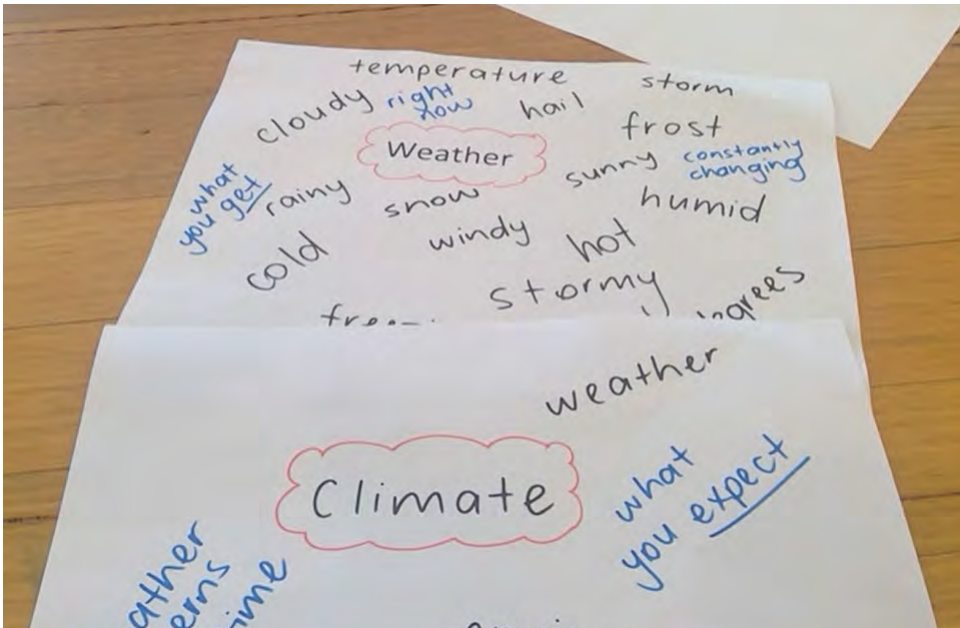 temperature
storm
cloudy
right
now
hail
frost
Weather
sunny
constantly
changing
what
you get
rainy
snow
humid
windy
hot
cold
stormy
weather
Climate
what
you expect